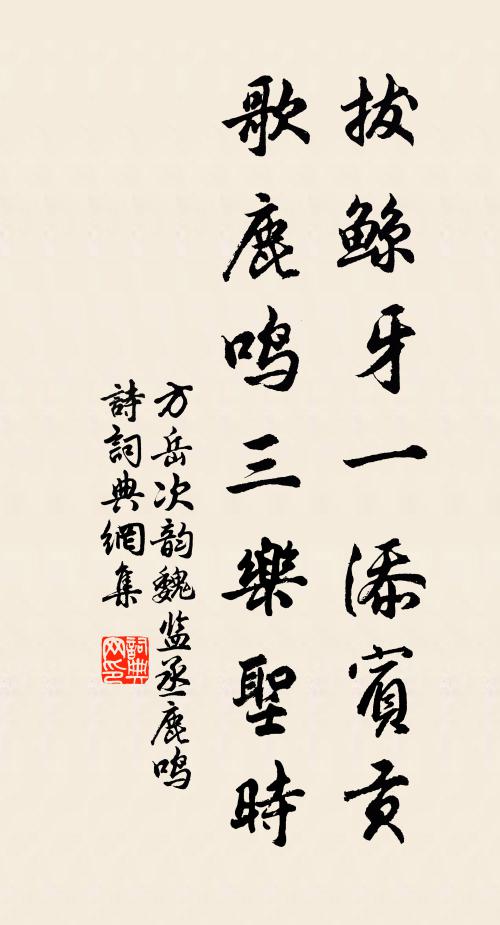 拔鲸牙一添賓贡
歌鹿鸣三樂聖時
方岳次韵魏监丞鹿鸣
詩詞典網集
詞典
网印